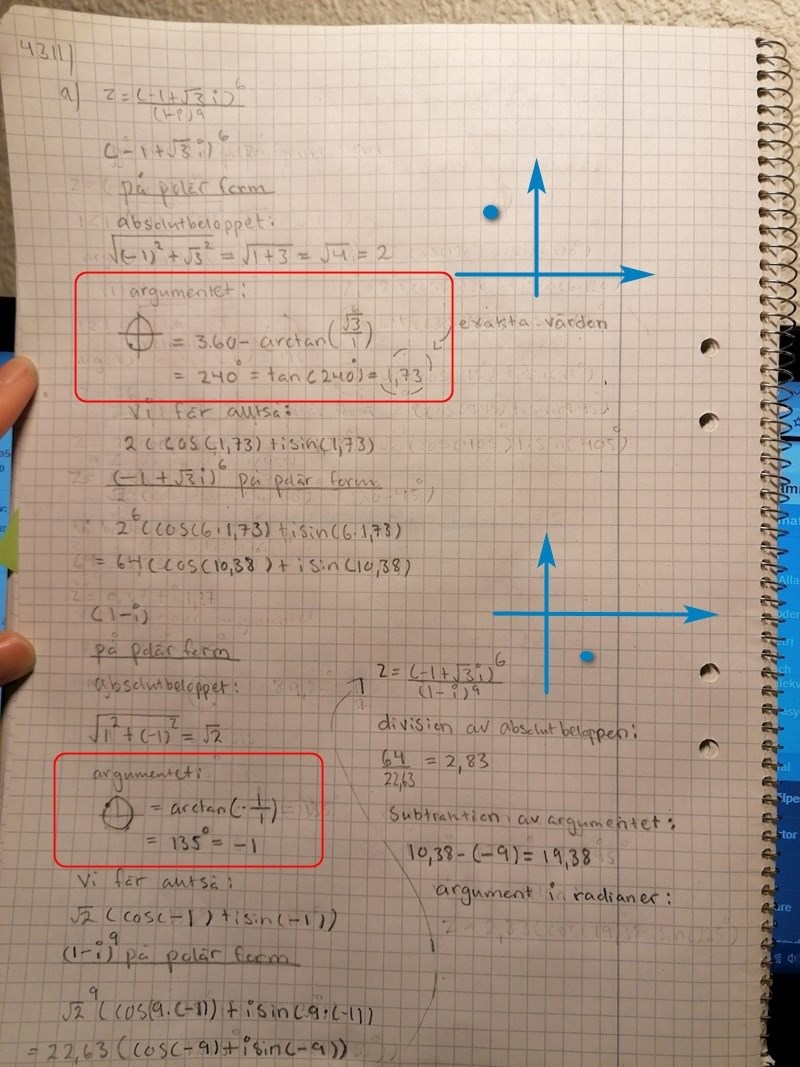 4311)
a) z = (-1+√3 i)^6 / (1-i)^9
(-1+√3 i)^6
på polär form
absolutbeloppet:
√((-1)² + √3²) = √(1+3) = √4 = 2
argumentet:
= 360 - arctan(√3/1)
= 240° = tan(240°) = 1,73
exakta värden
Vi får alltså:
2(cos(1,73) + i sin(1,73)
(-1+√3 i)^6 på polär form
2^6 (cos(6·1,73) + i sin(6·1,73)
= 64(cos(10,38) + i sin(10,38)
(1-i)
på polär form
absolutbeloppet:
√(1² + (-1)²) = √2
argumentet:
= arctan(-1/1)
= 135° = -1
Vi får alltså:
√2 (cos(-1) + i sin(-1))
(1-i)^9 på polär form
√2^9 (cos(9·(-1)) + i sin(9·(-1))
= 22,63 (cos(-9) + i sin(-9))
z = (-1+√3 i)^6 / (1-i)^9
division av absolutbeloppen:
64/22,63 = 2,83
Subtraktion av argumentet:
10,38 - (-9) = 19,38
argument i radianer: